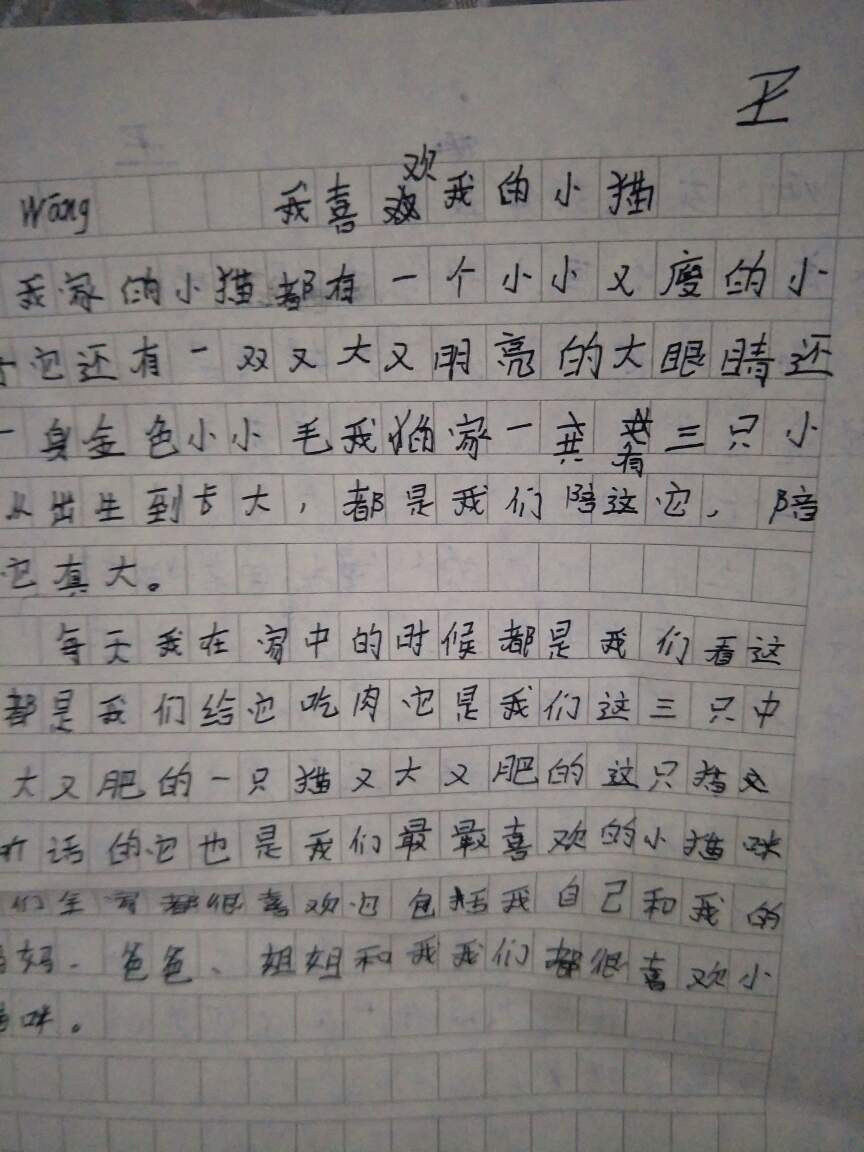 王
Wāng 我喜欢我的小猫
我家的小猫都有一个小小又度的小
它还有一双又大又明亮的大眼睛还
一身金色小小毛我猫家一共有三只小
从出生到长大，都是我们陪这它，陪
它真大。
每天我在家中的时候都是我们看这
都是我们给它吃肉它是我们这三只中
大又肥的一只猫又大又肥的这只猫
话的它也是我们最最喜欢的小猫咪
们全家都很喜欢它包括我自己和我的
妈、爸爸、姐姐和我我们都很喜欢小
咪。